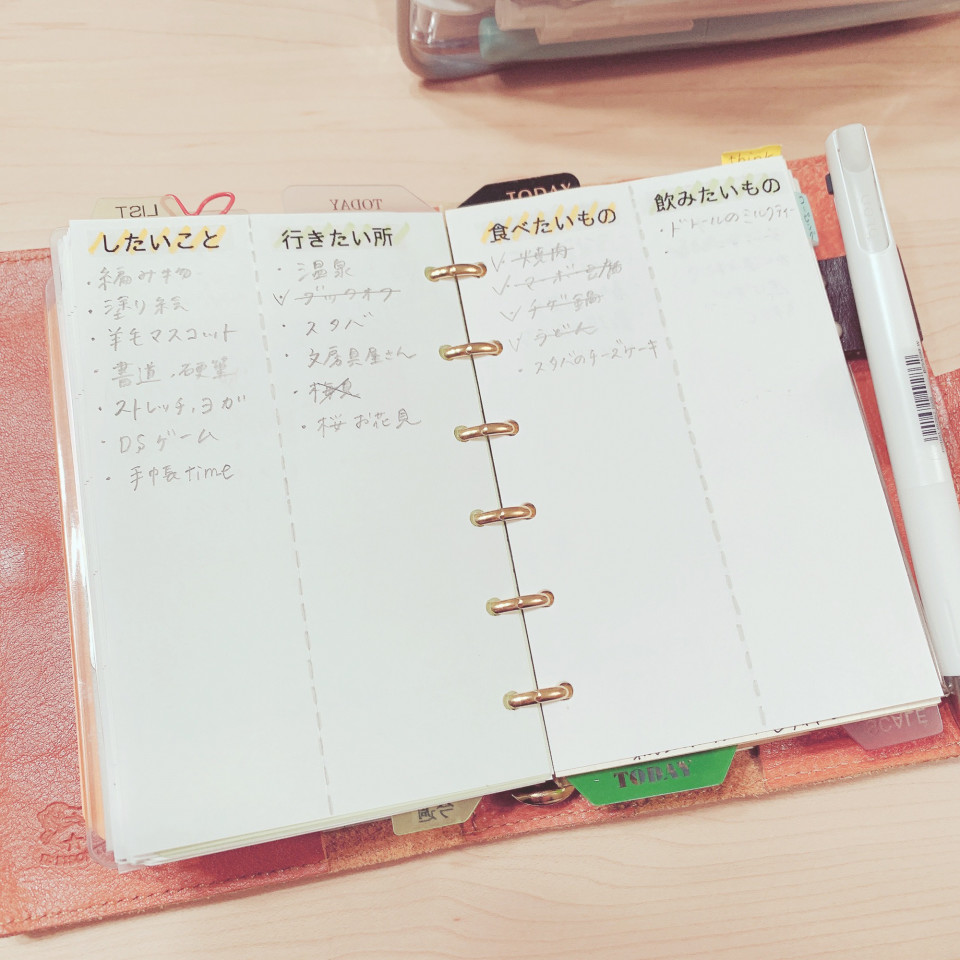 think
LIST
TODAY
TODAY
したいこと
・編み物
・塗り絵
・羊毛マスコット
・書道、硬筆
・ストレッチ、ヨガ
・DSゲーム
・手帳time
行きたい所
・温泉
✓ブックオフ
・スタバ
・文房具屋さん
・梅見
・桜 お花見
食べたいもの
✓焼肉
✓マーボー豆腐
✓チゲ鍋
✓うどん
・スタバのチーズケーキ
飲みたいもの
・ドトールのミルクティー
・
SCALE
TODAY
今週